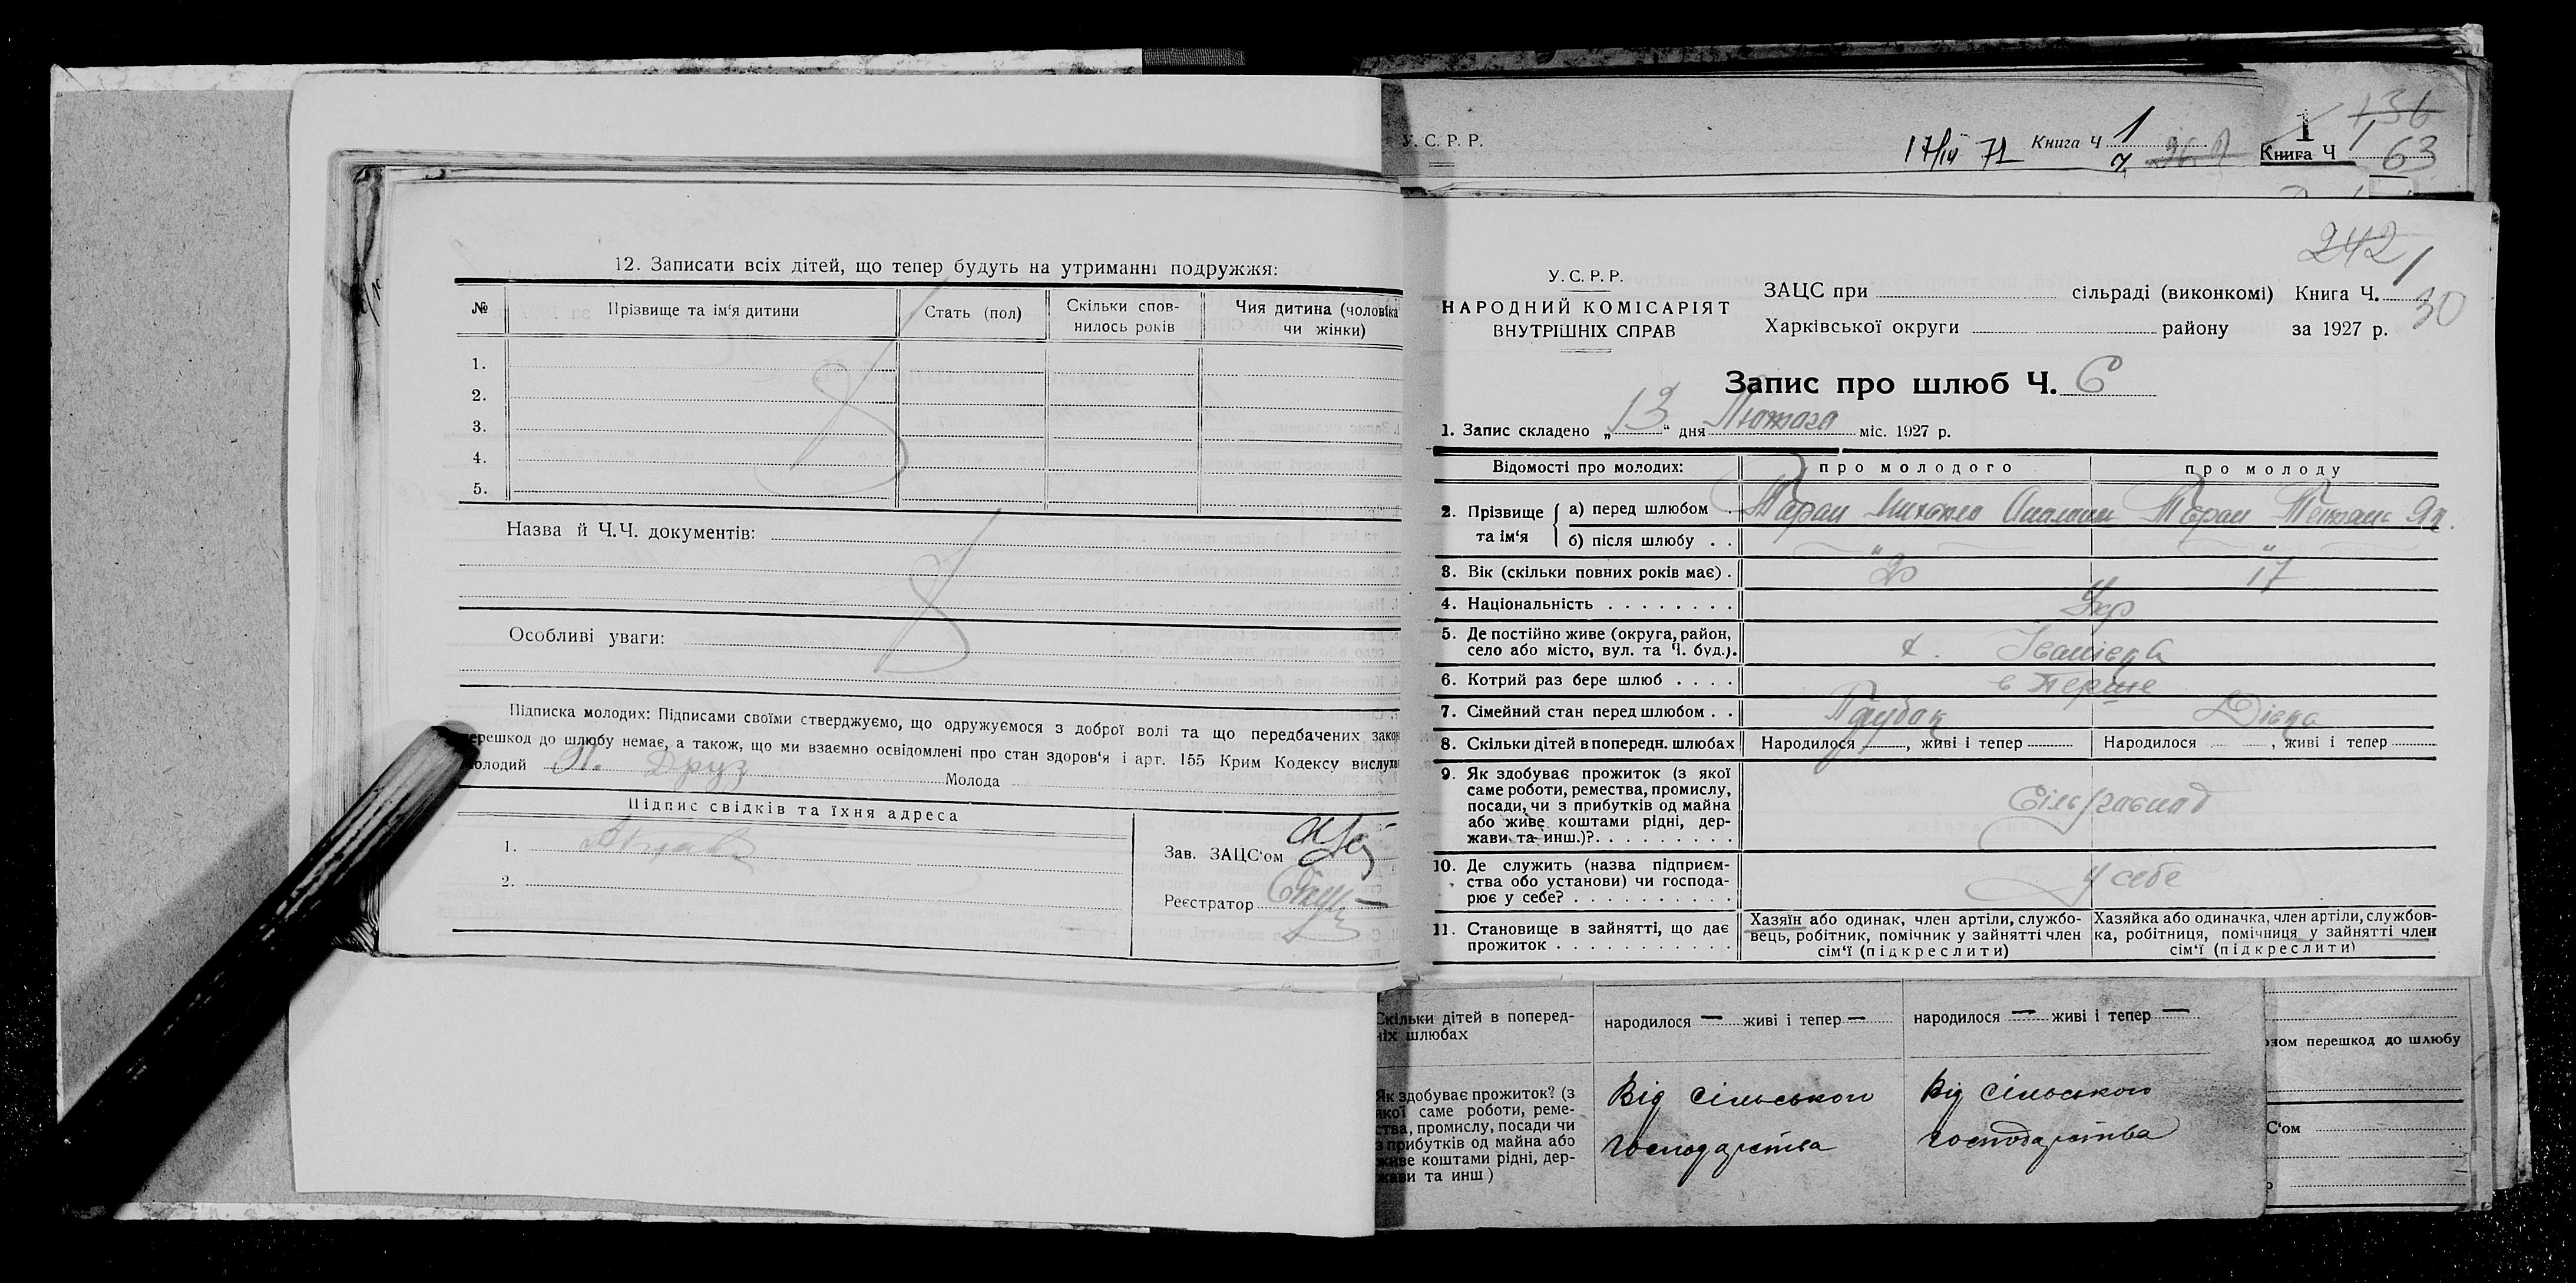 12. Записати всіх дітей, що тепер будуть на утриманні подружжя:
№ Прізвище та ім'я дитини Стать (пол) Скільки спов-нилось років Чия дитина (чоловіка чи жінки)
1.
2.
3.
4.
5.
Назва й Ч.Ч. документів:
Особливі уваги:
Підписка молодих: Підписами своїми стверджуємо, що одружуємося з доброї волі та що передбачених закон
ерешкод до шлюбу немає, а також, що ми взаємно освідомлені про стан здоров'я і арт. 155 Крим Кодексу вислуха
олодий Молода
Підпис свідків та їхня адреса
1.
2.
Зав. ЗАЦС'ом
Реєстратор
У. С. Р. Р.
17/IV 71 Книга Ч 1
1 136
Книга Ч 1 63
242 1
30
У. С. Р. Р.
НАРОДНИЙ КОМІСАРІЯТ
ВНУТРІШНІХ СПРАВ
ЗАЦС при сільраді (виконкомі) Книга Ч.
Харківської округи району за 1927 р.
Запис про шлюб Ч. 6
1. Запис складено „13“ дня Лютого міс. 1927 р.
Відомості про молодих: про молодого про молоду
2. Прізвище та ім'я { а) перед шлюбом . Таран Таран
б) після шлюбу . . " "
3. Вік (скільки повних років має) . 20 17
4. Національність . . . . . . . . Укр
5. Де постійно живе (округа, район,
село або місто, вул. та Ч. буд.). х. Іванівка
6. Котрий раз бере шлюб . . . . в перше
7. Сімейний стан перед шлюбом . . Парубок Дівка
8. Скільки дітей в попередн. шлюбах Народилося , живі і тепер Народилося , живі і тепер
9. Як здобуває прожиток (з якої
саме роботи, ремества, промислу,
посади, чи з прибутків од майна
або живе коштами рідні, дер-
жави та инш.)?. . . . . . . . .
10. Де служить (назва підприєм-
ства обо установи) чи господа-
рює у себе? . . . . . . . . . . у себе
11. Становище в зайнятті, що дає
прожиток . . . . . . . . . . .
Хазяїн або одинак, член артіли, службо-
вець, робітник, помічник у зайнятті член
сім'ї (підкреслити)
Хазяйка або одиначка, член артіли, службов-
ка, робітниця, помічниця у зайнятті член
сім'ї (підкреслити)
Скільки дітей в поперед-
ніх шлюбах
народилося — живі і тепер —
народилося — живі і тепер —
Як здобуває прожиток? (з
якої саме роботи, реме-
ства, промислу, посади чи
з прибутків од майна або
живе коштами рідні, дер-
жави та инш)
Від сільського
господарства
Від сільського
господарства
ном перешкод до шлюбу
С'ом